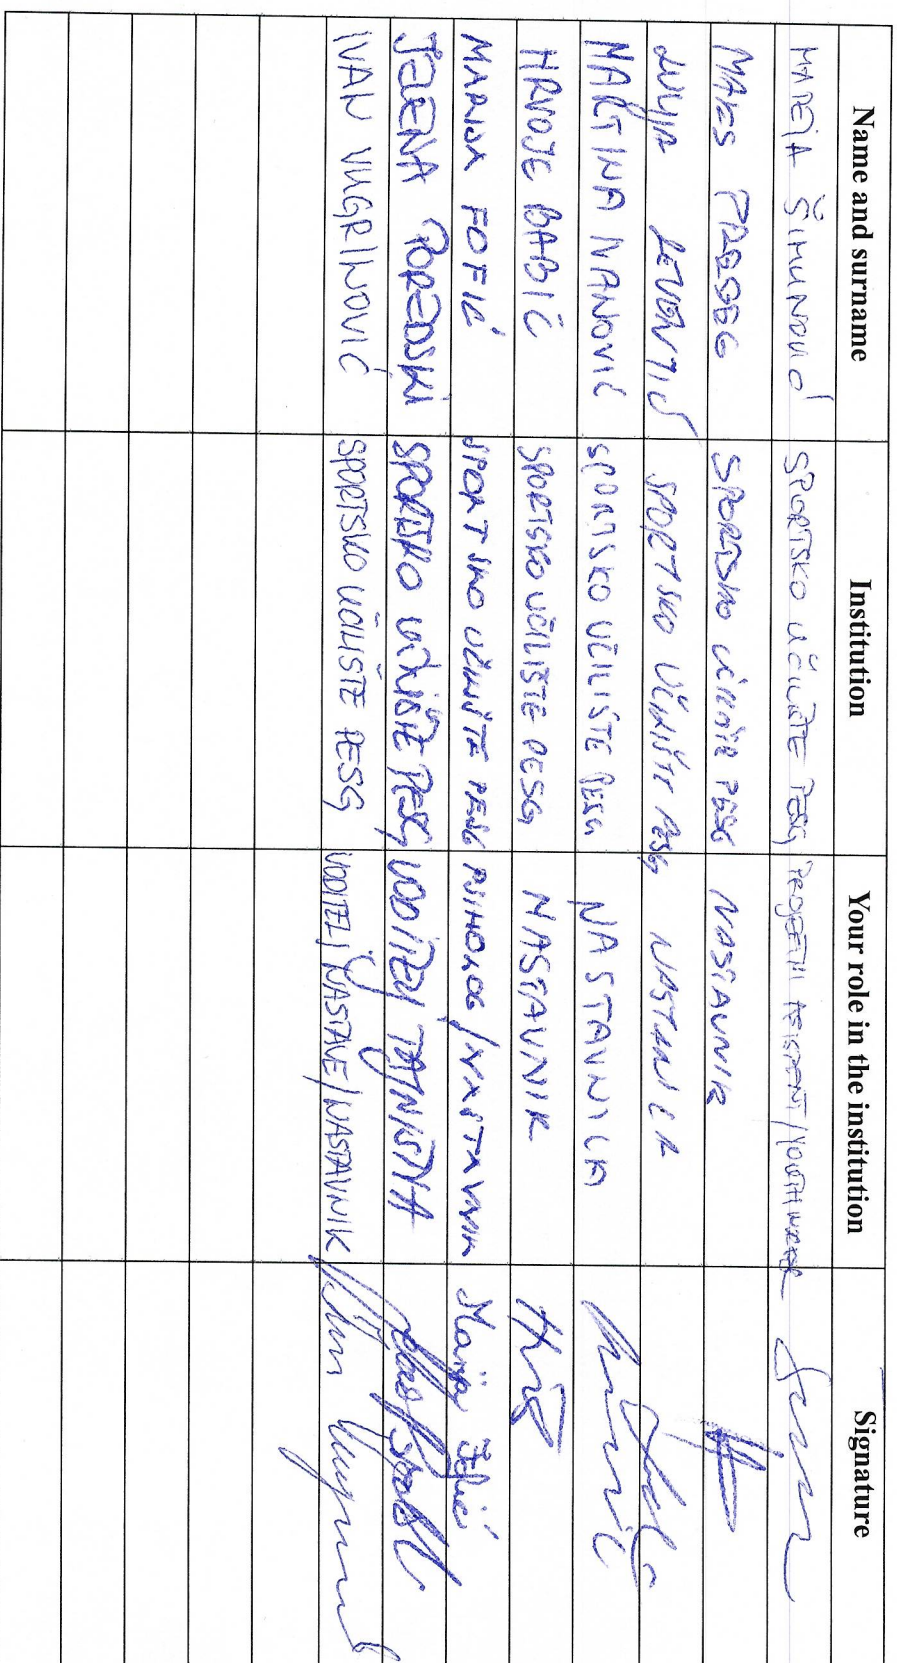 Name and surname Institution Your role in the institution Signature
MATEJA ŠIMUNOVIĆ SPORTSKO UČILIŠTE PESG PROJEKTNI ASISTENT/YOUTH WORKER
MAKS SPORTSKO UČILIŠTE PESG NASTAVNIK
LEVENTIĆ SPORTSKO UČILIŠTE PESG NASTAVNIK
MARTINA IVANOVIĆ SPORTSKO UČILIŠTE PESG NASTAVNICA
HRVOJE BABIĆ SPORTSKO UČILIŠTE PESG NASTAVNIK
MARIJA FOFIĆ SPORTSKO UČILIŠTE PESG PSIHOLOG/NASTAVNIK Marija
JELENA POREDSKI SPORTSKO UČILIŠTE PESG VODITELJ TAJNIŠTVA
IVAN VUGRINOVIĆ SPORTSKO UČILIŠTE PESG VODITELJ NASTAVE/NASTAVNIK